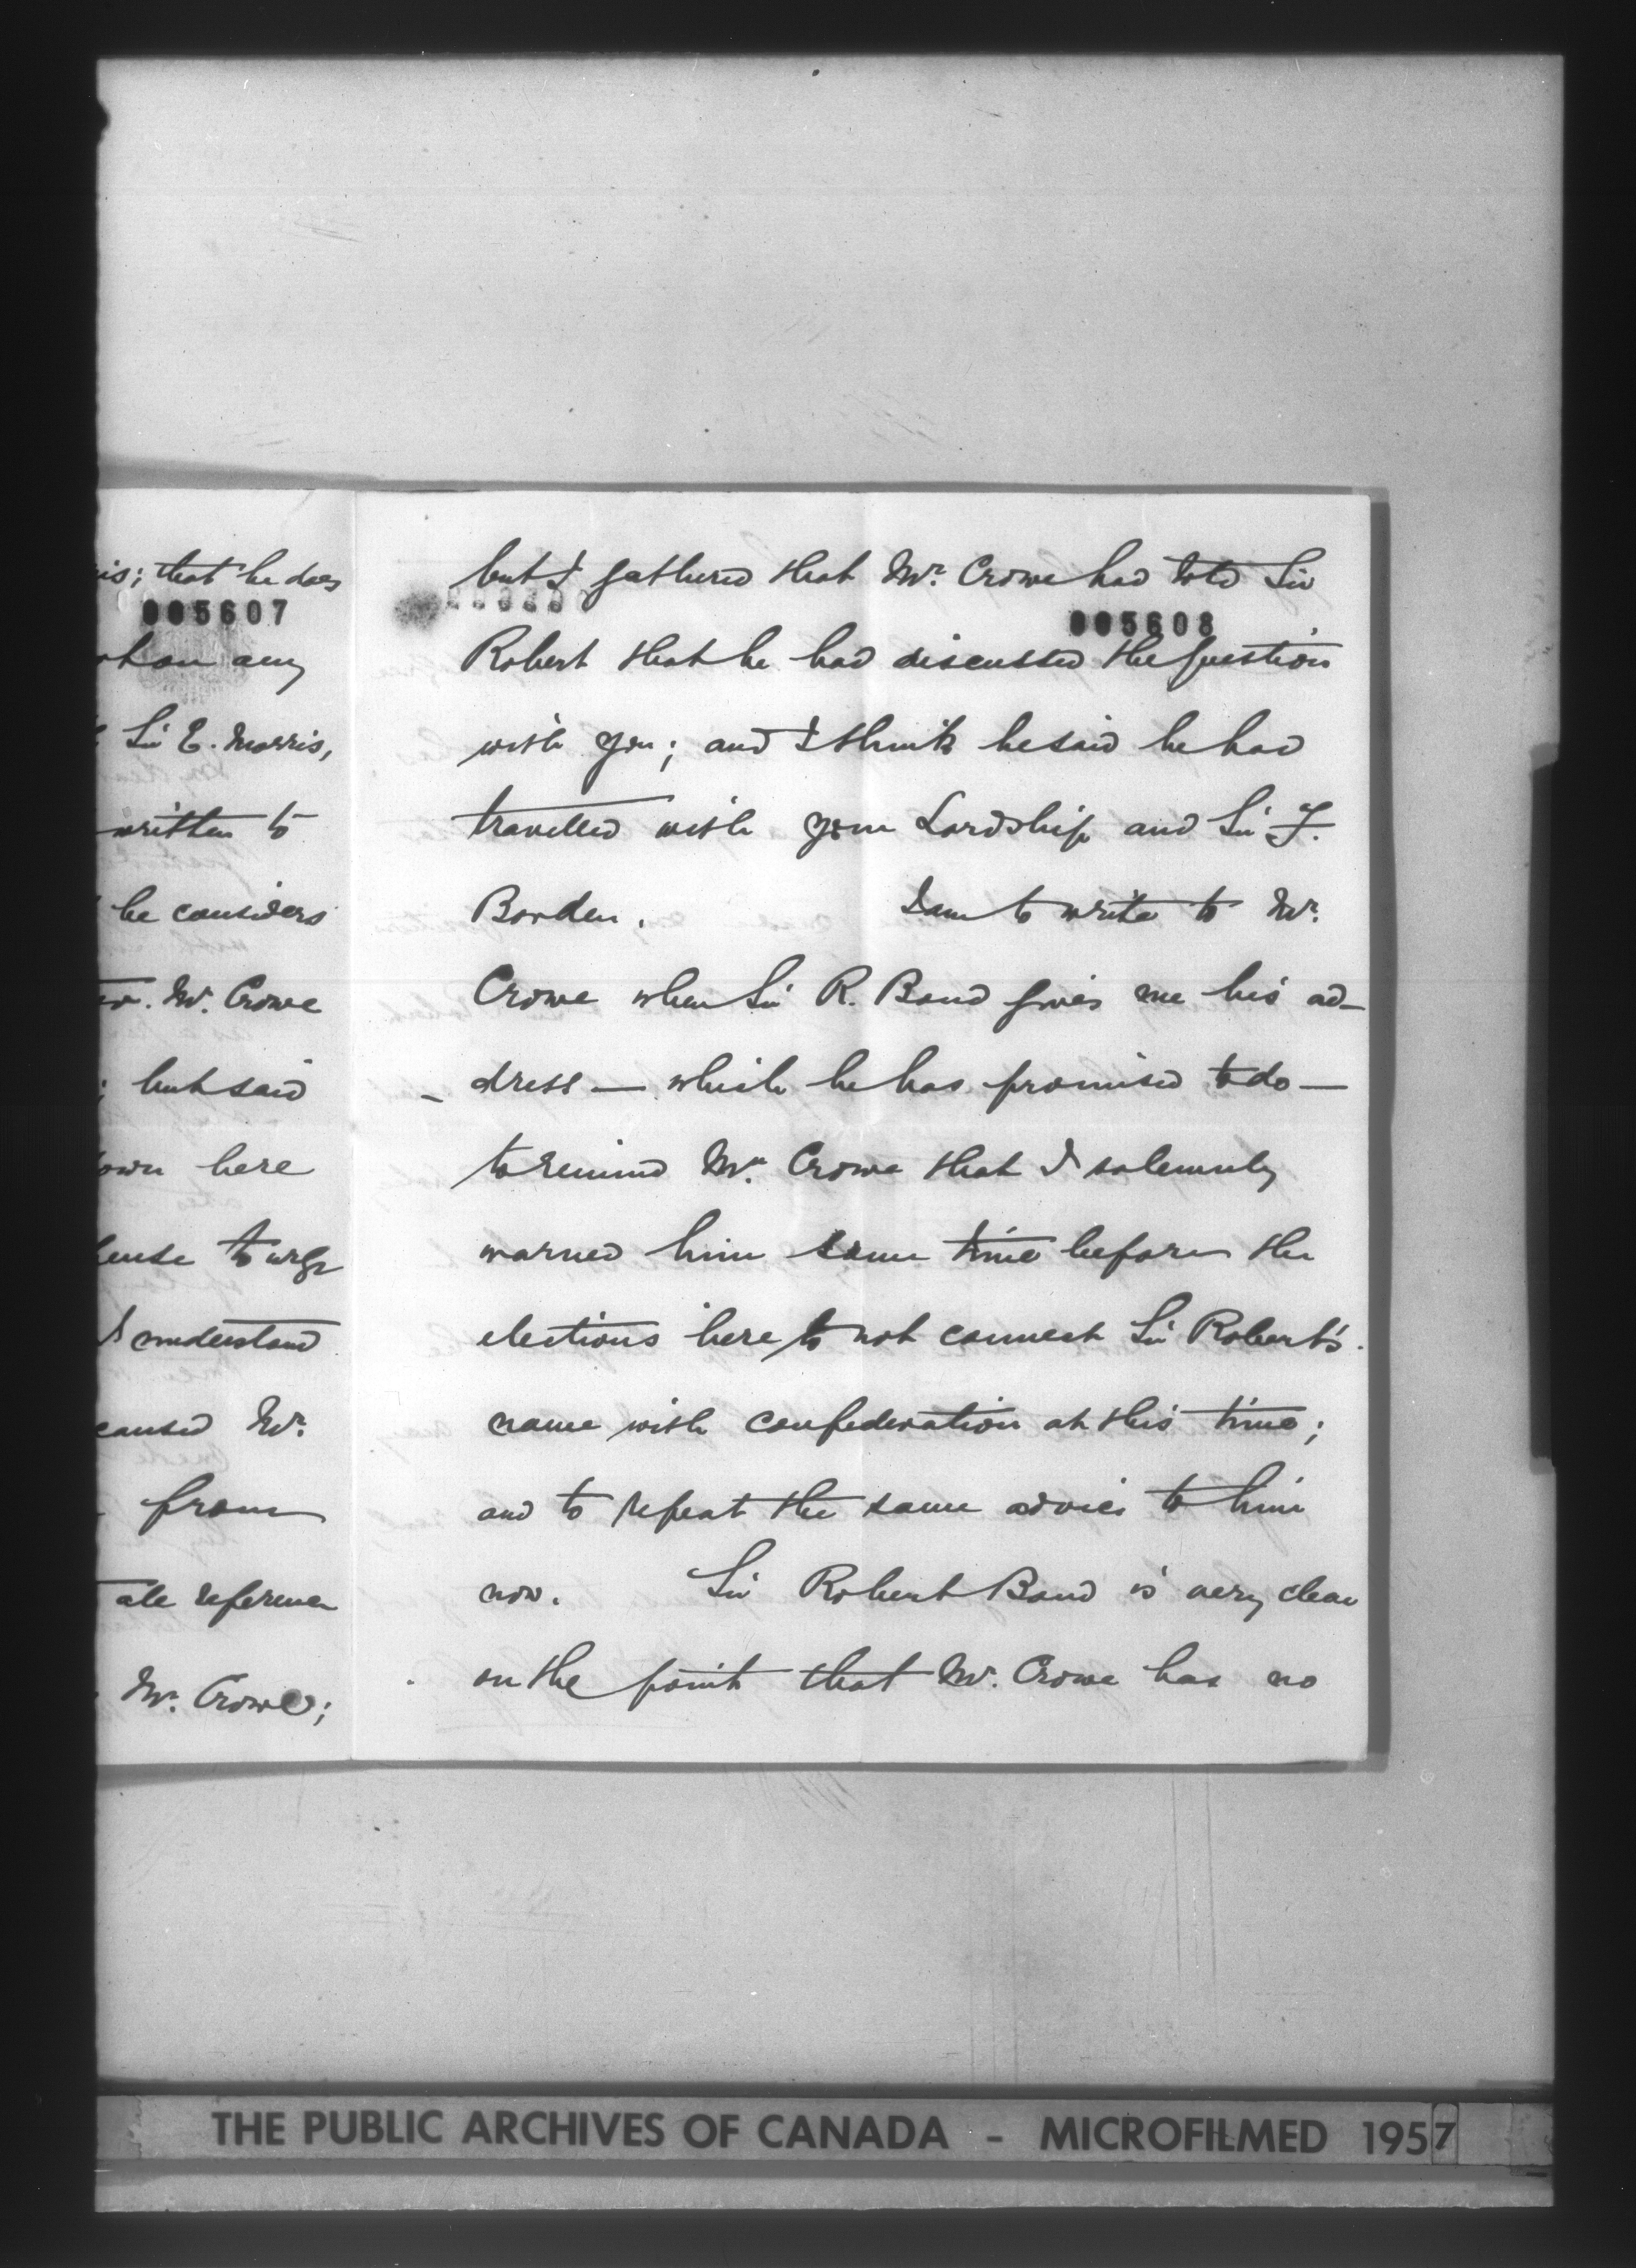 is; that he does
005607
than any
Sir E. Morris,
written to
he considers
Mr. Crowe
; but said
own here
to urge
I understand
caused Mr.
from
ate reference
Mr. Crowe;
but I gathered that Mr. Crowe had told Sir
005608
Robert that he had discussed the question
with you; and I think he said he had
travelled with your Lordship and Sir F.
Borden. I am to write to Mr.
Crowe when Sir R. Bond gives me his ad-
dress — which he has promised to do —
to remind Mr. Crowe that I solemnly
warned him some time before the
elections here to not connect Sir Robert's
name with confederation at this time;
and to repeat the same advice to him
now. Sir Robert Bond is very clear
on the point that Mr. Crowe has no
THE PUBLIC ARCHIVES OF CANADA - MICROFILMED 1957